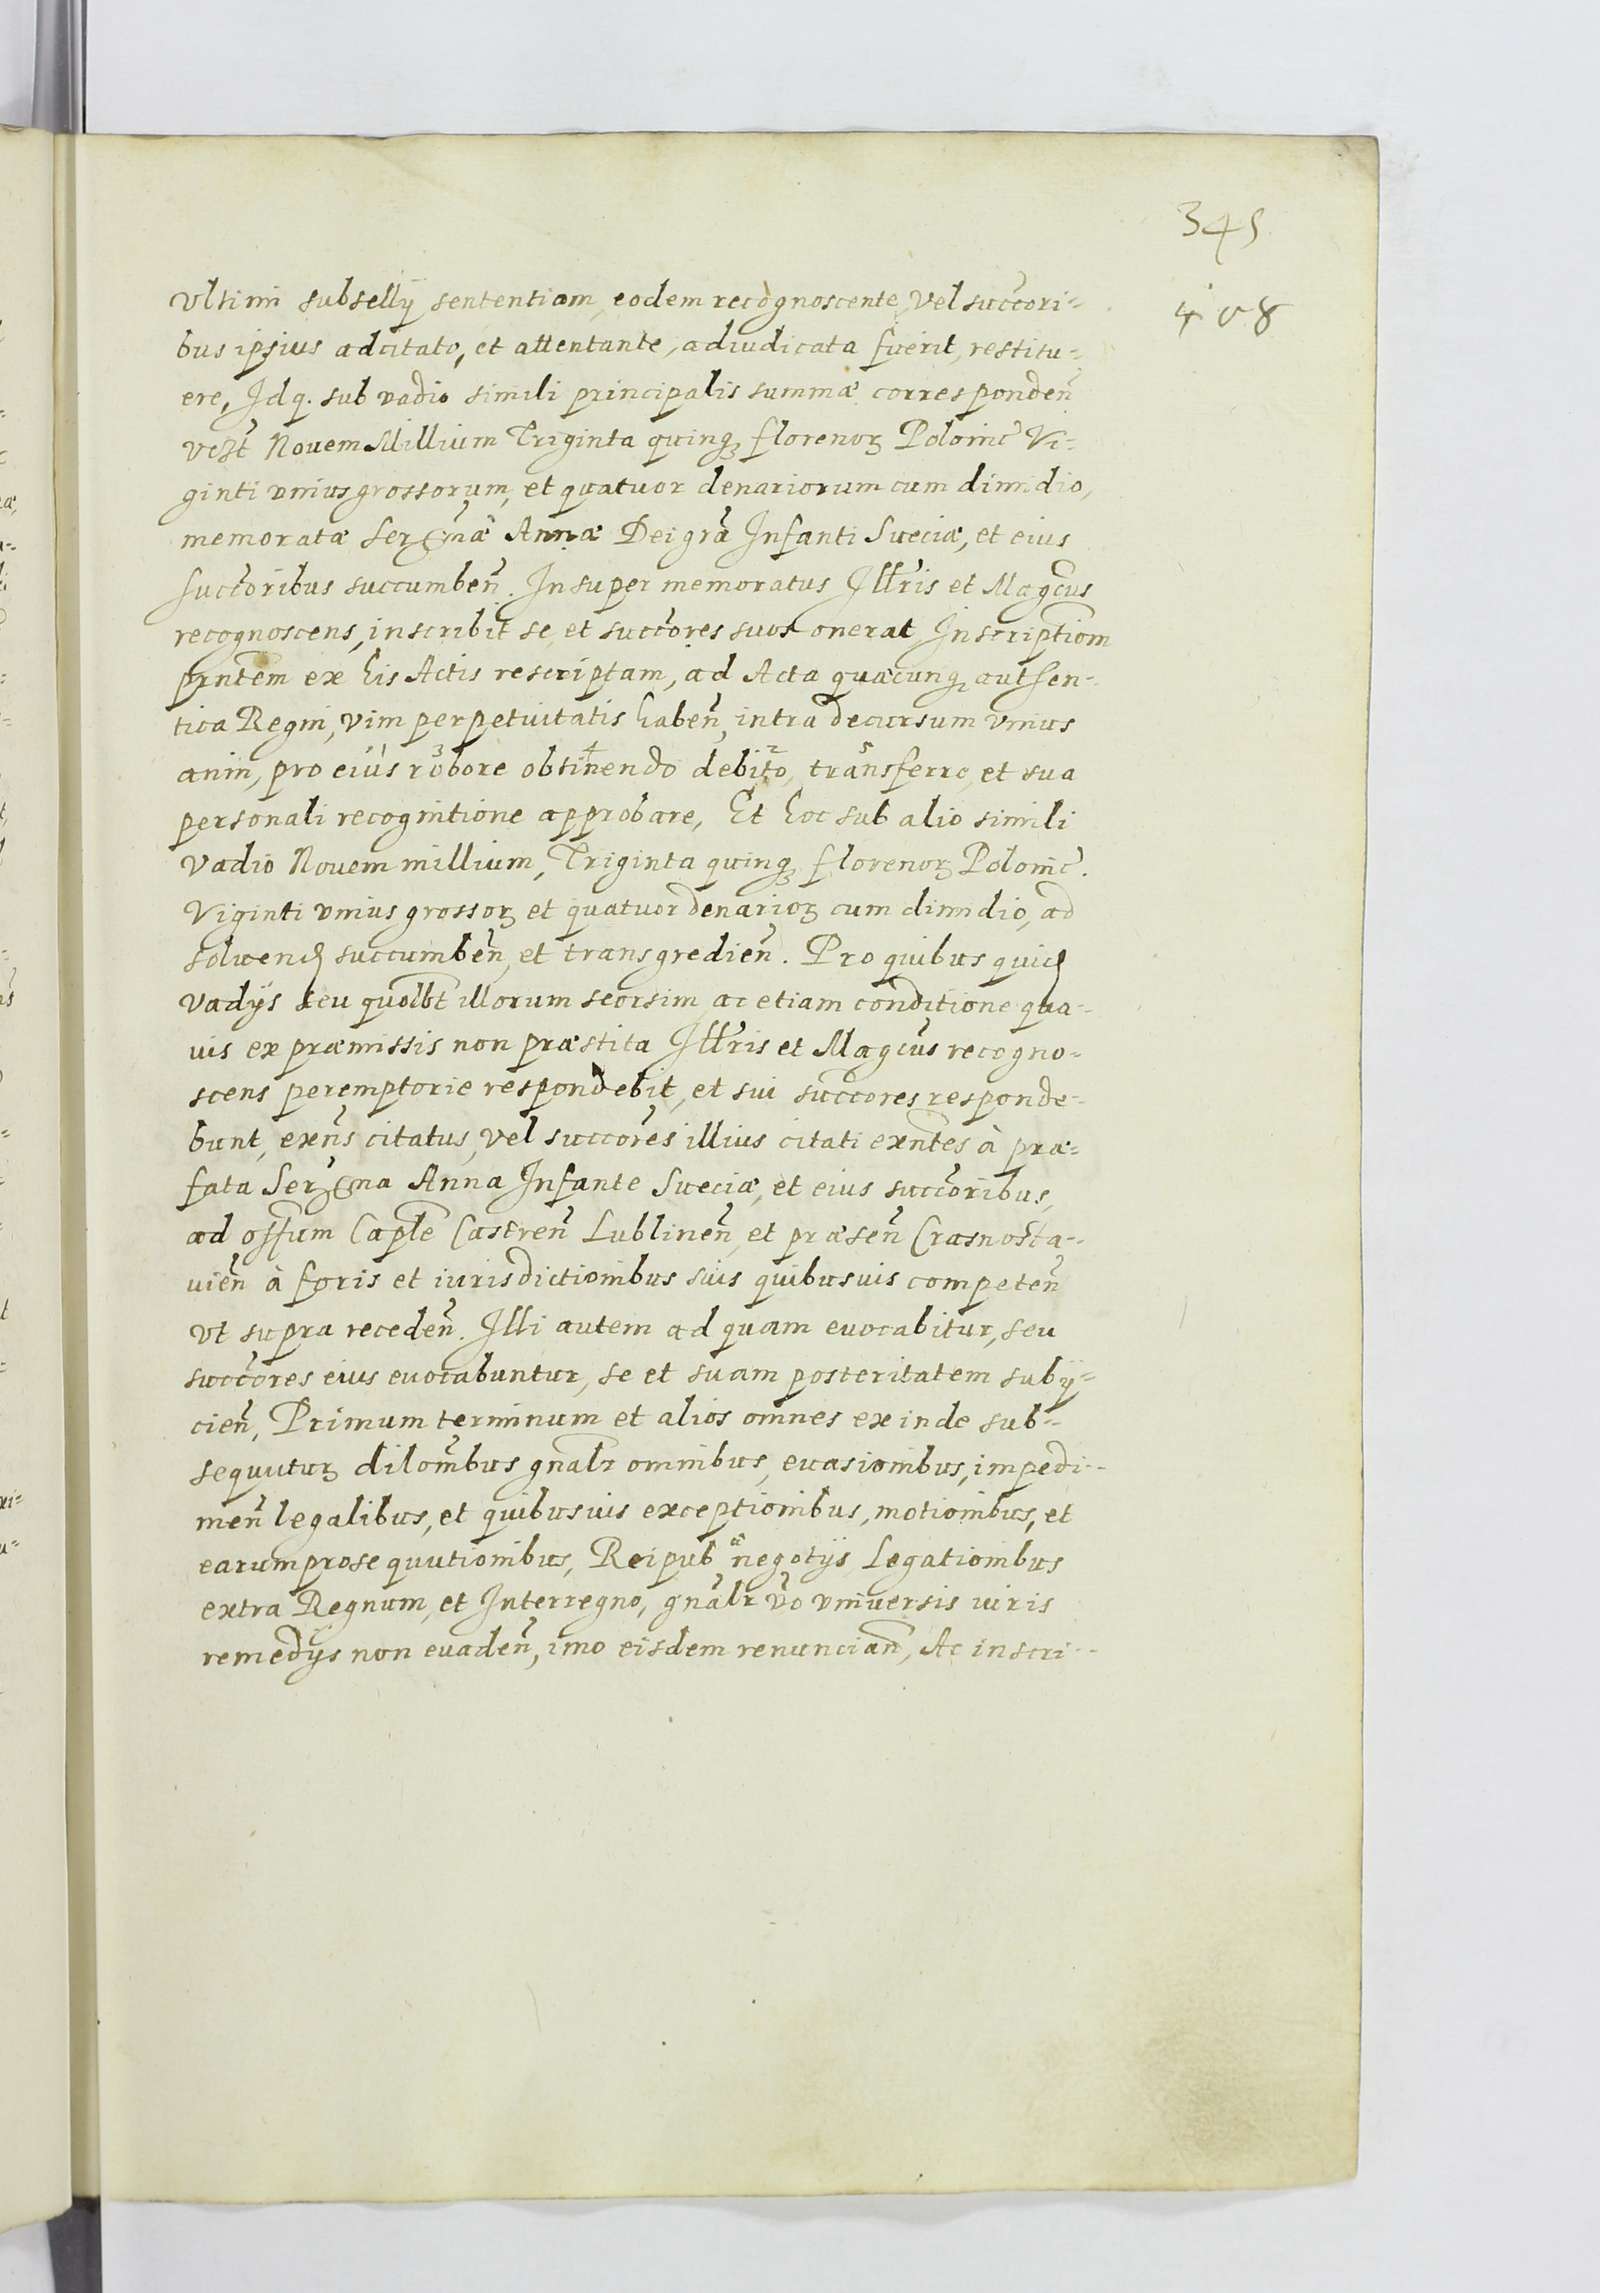 345
408
Vltimi subsellÿ sententiam, eodem recognoscente, Vel succori=
bus ipsius adcitato, et attentante, adiudicata fuerit, restitu=
ere, Idq. sub vadio simili principalis summæ corresponden
vezt Nouem Millium Triginta quinq; florenoꝝ Polonic Vi=
ginti vnius grossorum, et quatuor denariorum cum dimidio,
memoratæ Serꝫmæ Annæ Dei gra Infanti Sueciæ, et eius
succoribus succumben. Insuper memoratus Illris et Magcus
recognoscens, inscribit se, et succores suos onerat Inscriptiom
prntem ex his Actis rescriptam, ad Acta quæcunq; authen=
tica Regni, vim perpetuitatis haben, intra decursum vnius
anni, pro eius 1 robore 3 obtinendo 4 debito 2, transferre 5, et sua
personali recognitione approbare, Et hoc sub alio simili
Vadio Nouem millium, Triginta quinq; florenoꝝ Polonic.
Viginti vnius grossoꝝ et quatuor denarioꝝ cum dimidio, ad
soluend succumben, et transgredien. Pro quibus quid
vadÿs seu quolbt illorum seorsim, ac etiam conditione qua=
uis ex præmissis non præstita Illris et Magcus recogno=
scens peremptorie respondebit, et sui succores responde=
bunt, exns citatus, vel succores illius citati exntes à præ=
fata Serꝫma Anna Infante Sueciæ, et eius succoribus,
ad offum Caple Castren Lublinen, et præsen Crasnosta=
uien à foris et iurisdictionibus suis quibusuis competen
vt supra receden. Illi autem ad quam euocabitur, seu
succores eius euocabuntur, se et suam posteritatem subÿ=
cien, Primum terminum et alios omnes exinde sub=
sequutur dilombus gnalr omnibus, euasionibus, impedi=
men legalibus, et quibusuis exceptionibus, motionibus, et
earum prosequutionibus, Reipub negotÿs, Legationibus
extra Regnum, et Interregno, gnalr vo vniuersis iuris
remedÿs non euaden, imo eisdem renuncian, Ac inscri=